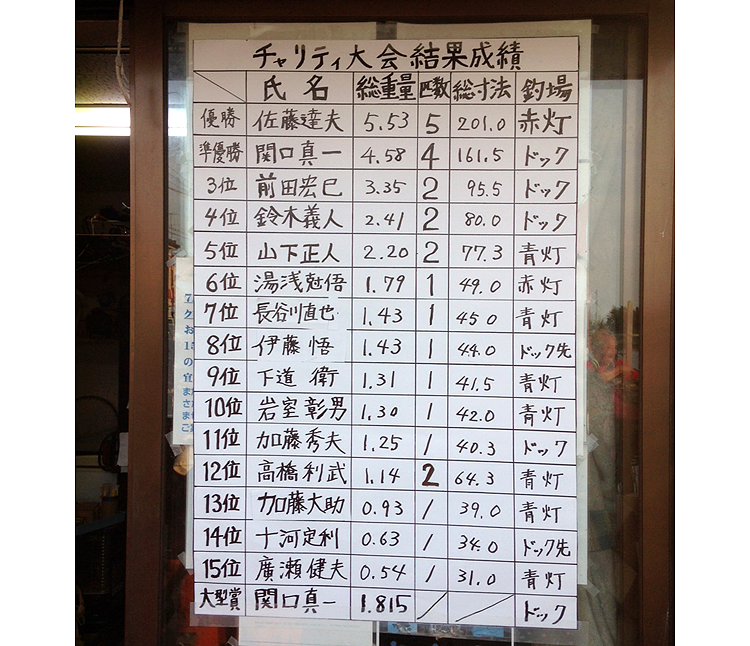 チャリティ大会結果成績
氏名 総重量 匹数 総寸法 釣場
優勝 佐藤達夫 5.53 5 201.0 赤灯
準優勝 関口真一 4.58 4 161.5 ドック
3位 前田宏巳 3.35 2 95.5 ドック
4位 鈴木義人 2.41 2 80.0 ドック
5位 山下正人 2.20 2 77.3 青灯
6位 湯浅尅悟 1.79 1 49.0 赤灯
7位 長谷川直也 1.43 1 45.0 青灯
8位 伊藤悟 1.43 1 44.0 ドック先
9位 下道衛 1.31 1 41.5 青灯
10位 岩室彰男 1.30 1 42.0 青灯
11位 加藤秀夫 1.25 1 40.3 ドック
12位 高橋利武 1.14 2 64.3 青灯
13位 加藤大助 0.93 1 39.0 青灯
14位 十河定利 0.63 1 34.0 ドック先
15位 廣瀬健夫 0.54 1 31.0 青灯
大型賞 関口真一 1.815 / / ドック